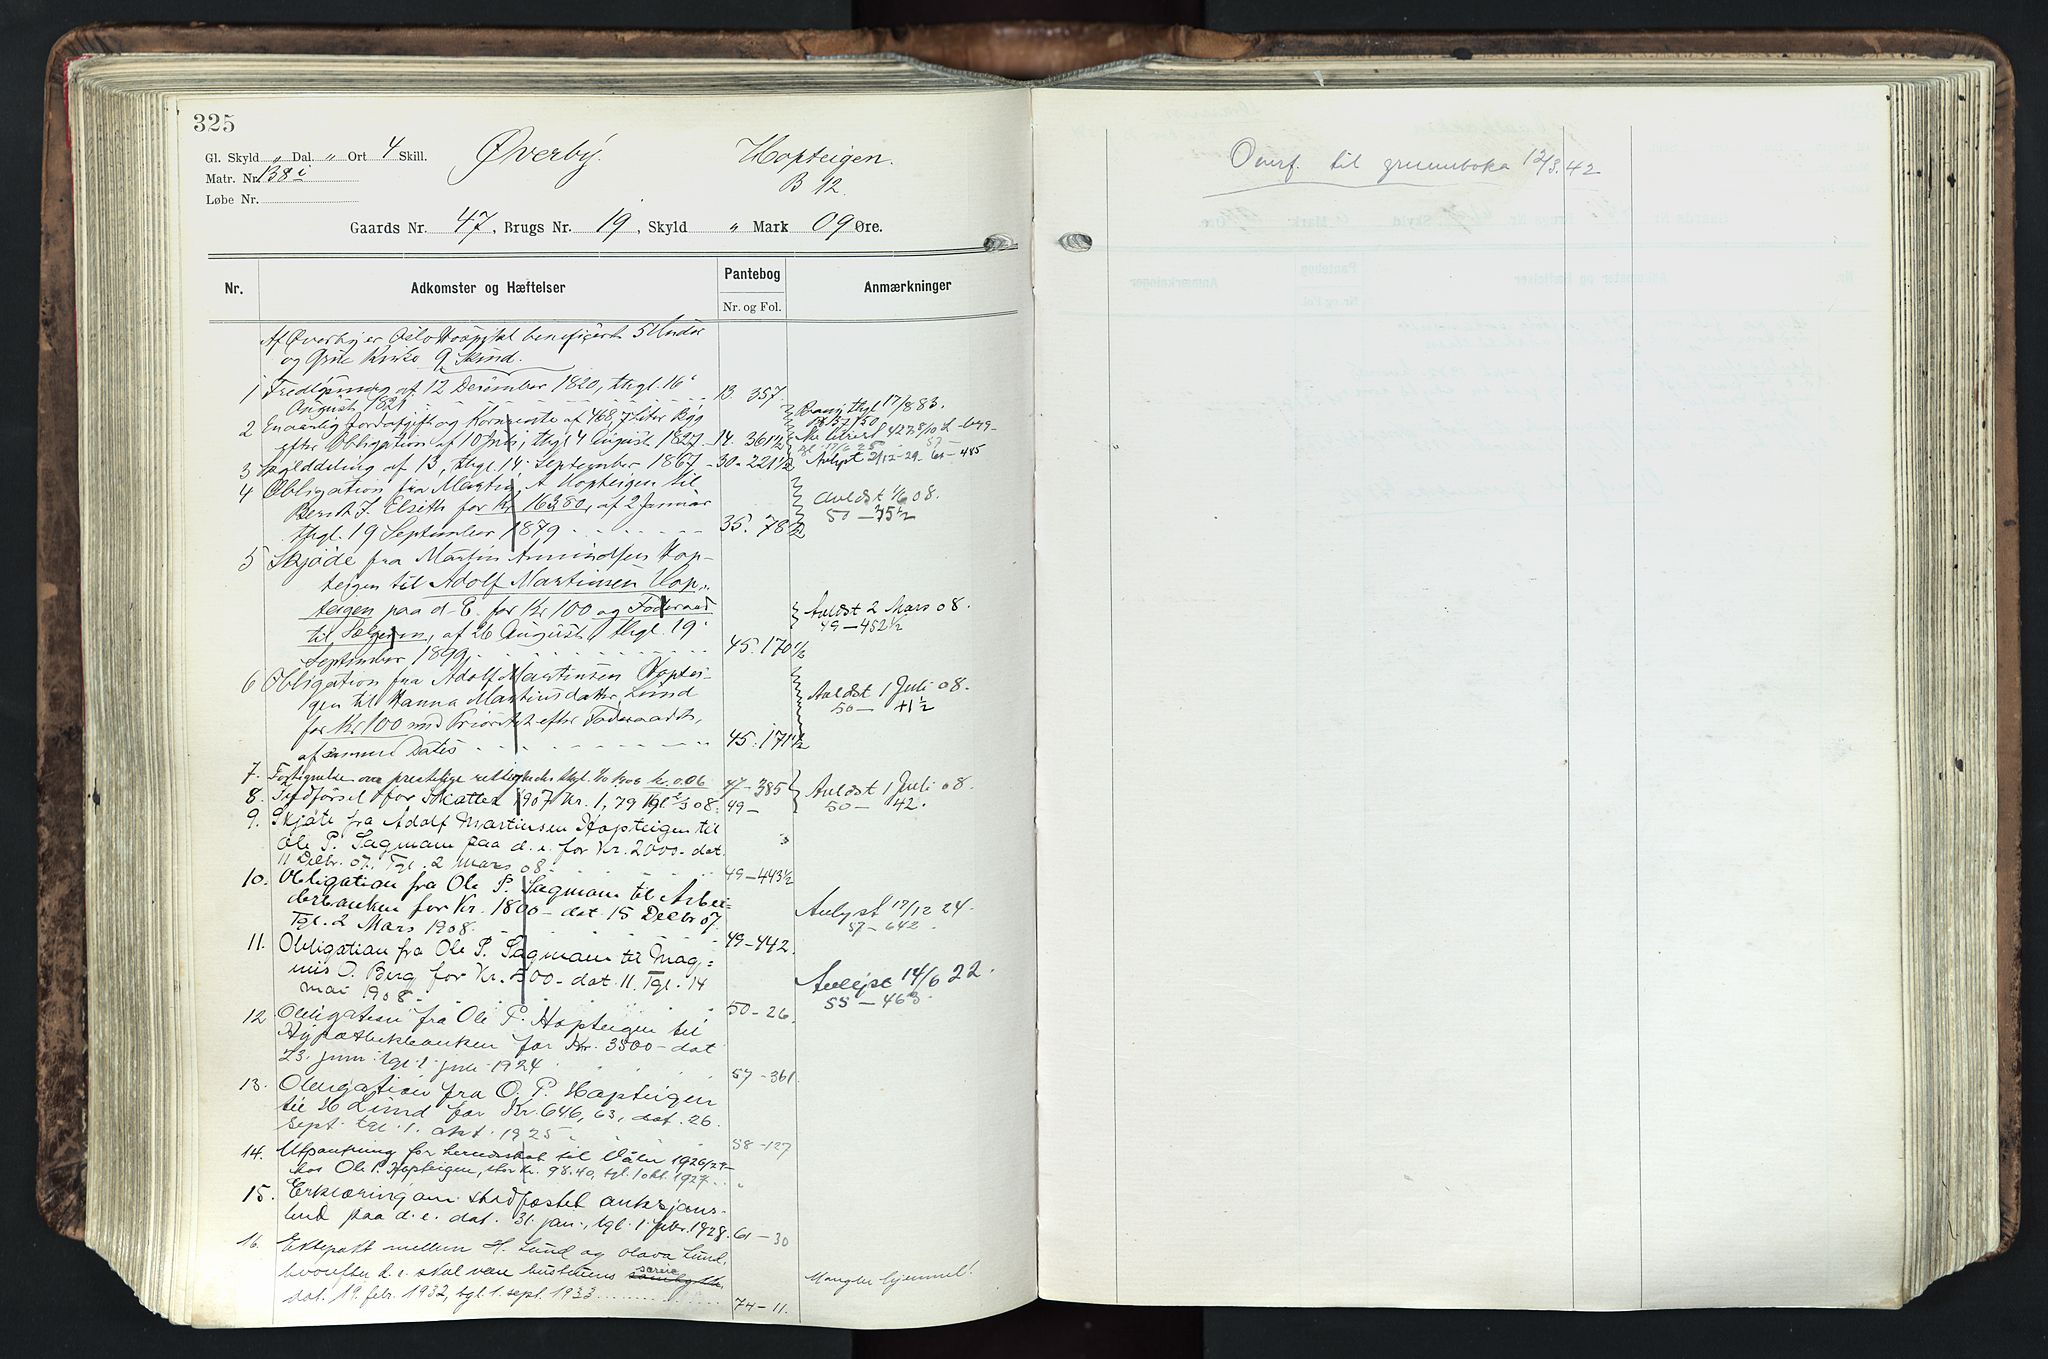 325
Gl. Skyld „ Dal. „ Ort 4 Skill. Øverby. Hopteigen.
Matr. Nr. 138 i B 12.
Løbe Nr.
Gaards Nr. 47, Brugs Nr. 19, Skyld „ Mark 09 Øre.
Nr. Adkomster og Hæftelser Pantebog Anmærkninger
Nr. og Fol.
Af Øverby er Oslo Hospital beneficeret 5 Huder
og Grue Kirke 9 Skind.
1 Fredlysning af 12 December 1820, thgl. 16
August 1821 13. 357
2 En aarlig Jordafgift og Kornrente af 468,7 Liter Byg
efter Obligation af 10 Juli, thgl. 4 August 1827 - 14. 361½
thgl 17/8 83.
427 8/10
3 Skylddeling af 13, thgl. 14 September 1867 - 30 - 221½
Avlyst 21/12-29 - 61 - 485
4 Obligation fra Martin A Hopteigen til
Bernt J. Elseth for Kr 163,80, af 2 Januar
thgl. 19 September 1879 35. 78½
Avlæst 1/6 08.
50 - 35½
5 Skjøde fra Martin Amundsen Hop-
teigen til Adolf Martinsen Hop-
teigen paa d. E. for Kr 100 og Føderaad
til Sælgeren, af 26 August, thgl. 19
September 1899 45. 170½
Avlæst 2 Mars 08.
49 - 452½
6 Obligation fra Adolf Martinsen Hoptei-
gen til Hanna Martinsdatter Lund
for Kr 100 med Prioritet efter Føderaadet,
af samme Dato 45. 171½
Avlæst 1 Juli 08.
50 - 41½
7. Fortegnelse over prestelige rettigheder thgl. 1908 kr. 0.06 47 - 385
8. Indførsel for Skatter 1907 Kr. 1,79 Tgl. 2/3 08. 49 -
Avlæst 1 Juli 08.
50 - 42.
9. Skjøte fra Adolf Martinsen Hopteigen til
Ole P. Sagmoen paa d. e. for Kr. 2000 - dat.
11 Decbr. 07. Tgl. 2 mars 08. 49 - 443½
10. Obligation fra Ole P. Sagmoen til Arbei-
derbanken for Kr. 1800 - dat. 15 Decbr 07.
Tgl. 2 Mars 1908. 49 - 442.
Avlyst 17/12 24.
57 - 642.
11. Obligation fra Ole P. Sagmoen til Mag-
nus O. Berg for Kr. 500 - dat. 11. Tgl. 14
mai 1908. 50 - 26.
Avlyst 14/6 22.
55 - 463.
12 Obligation fra Ole P. Hopteigen til
Hypotekbanken for Kr. 3500 - dat
23. juni tgl. 1. juli 1924 57 - 361.
13. Obligation fra O. P. Hopteigen
til H Lund for Kr. 646,63, dat. 26.
sept. tgl. 1. okt. 1925. 58 - 127
14. Utpantning for herredskat til Våler 1926/27
hos Ole P. Hopteigen, stor kr. 98.40, tgl. 1 okt. 1927. „
15. Erklæring om stadfæstet auksjons-
bud paa d. e. dat. 31. jan., tgl. 1. febr. 1928. 61 - 30
16. Ektepakt mellem H. Lund og Olava Lund,
hvorefter d. e. skal være hustruens særeie
dat. 19. febr. 1932, tgl. 1. sept. 1933 74 - 11.
Mangler hjemmel!
Overf. til grunnboka 12/3.42